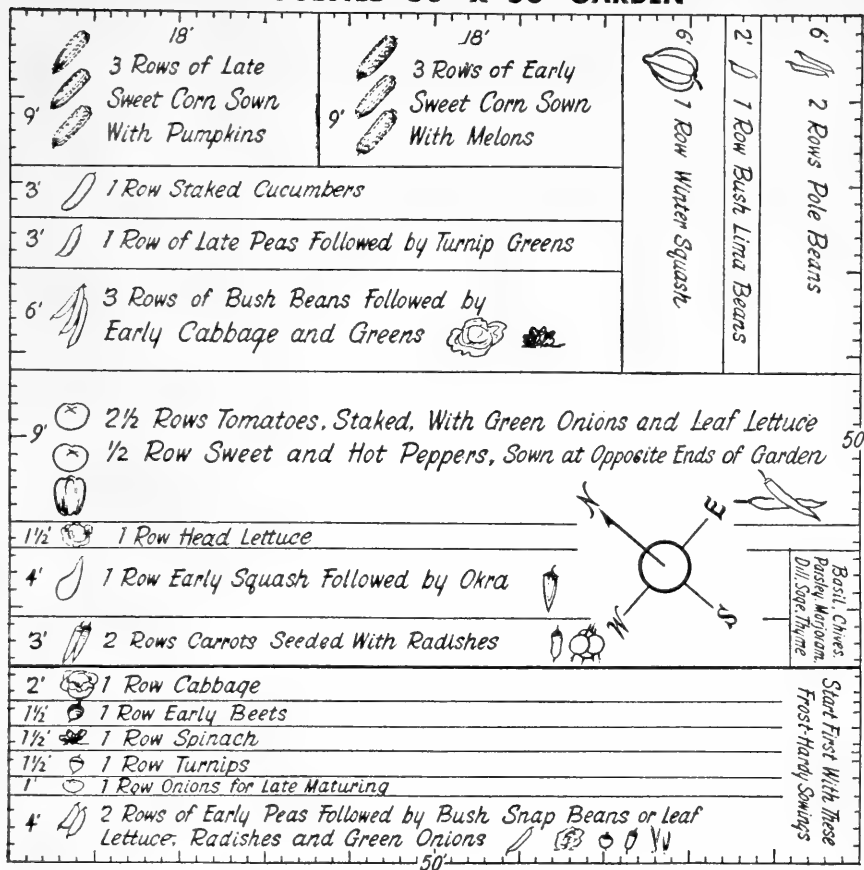 18'
3 Rows of Late
Sweet Corn Sown
With Pumpkins
9'
18'
3 Rows of Early
Sweet Corn Sown
With Melons
9'
6'
1 Row Winter Squash
2'
1 Row Bush Lima Beans
6'
2 Rows Pole Beans
3' 1 Row Staked Cucumbers
3' 1 Row of Late Peas Followed by Turnip Greens
6' 3 Rows of Bush Beans Followed by
Early Cabbage and Greens
9' 2½ Rows Tomatoes, Staked, With Green Onions and Leaf Lettuce
½ Row Sweet and Hot Peppers, Sown at Opposite Ends of Garden
50'
1½' 1 Row Head Lettuce
4' 1 Row Early Squash Followed by Okra
N
E
W
S
Basil, Chives,
Parsley, Marjoram,
Dill, Sage, Thyme
3' 2 Rows Carrots Seeded With Radishes
2' 1 Row Cabbage
1½' 1 Row Early Beets
1½' 1 Row Spinach
1½' 1 Row Turnips
1' 1 Row Onions for Late Maturing
4' 2 Rows of Early Peas Followed by Bush Snap Beans or Leaf
Lettuce, Radishes and Green Onions
Start First With These
Frost-Hardy Sowings
50'